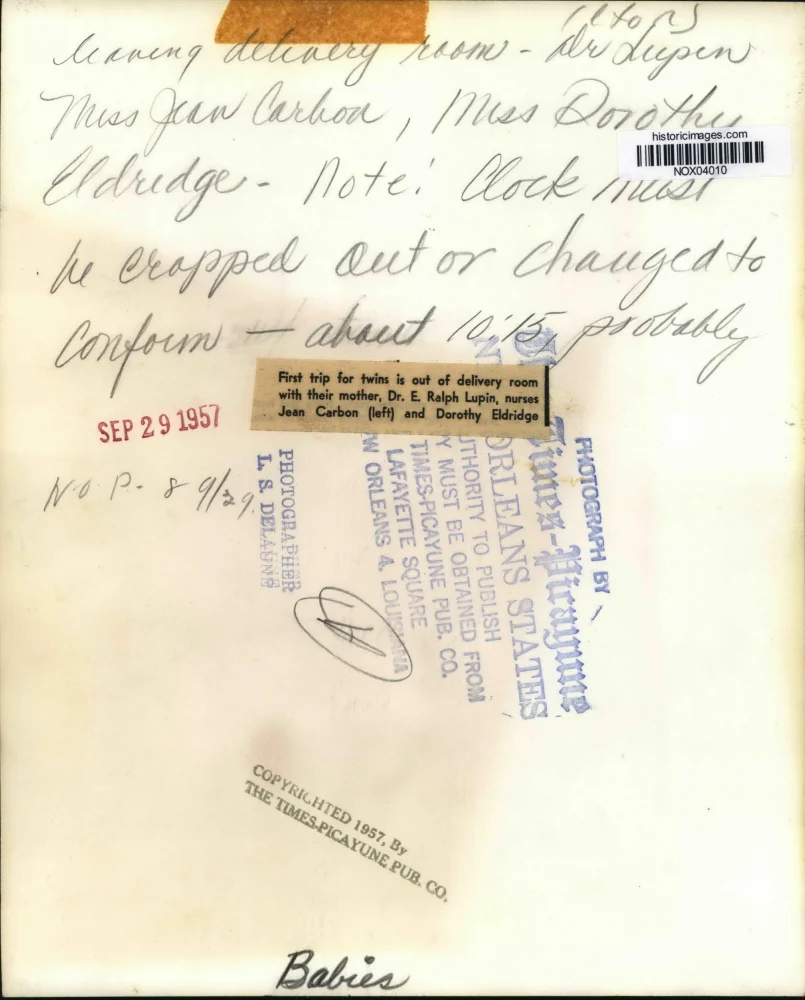 (l to r)
leaving delivery room - Dr Lupin
Miss Jean Carbon, Miss Dorothy
Eldredge - Note: Clock must
be cropped out or changed to
conform — about 10:15, probably
historicimages.com
NOX04010
First trip for twins is out of delivery room
with their mother, Dr. E. Ralph Lupin, nurses
Jean Carbon (left) and Dorothy Eldridge
SEP 29 1957
N.O.P. - 8 9/29
PHOTOGRAPHER
L. S. DELAUNE
PHOTOGRAPH BY
Times-Picayune
ORLEANS STATES
UTHORITY TO PUBLISH
Y MUST BE OBTAINED FROM
TIMES-PICAYUNE PUB. CO.
LAFAYETTE SQUARE
W ORLEANS 4, LOUISIANA
COPYRIGHTED 1957, By
THE TIMES-PICAYUNE PUB. CO.
Babies